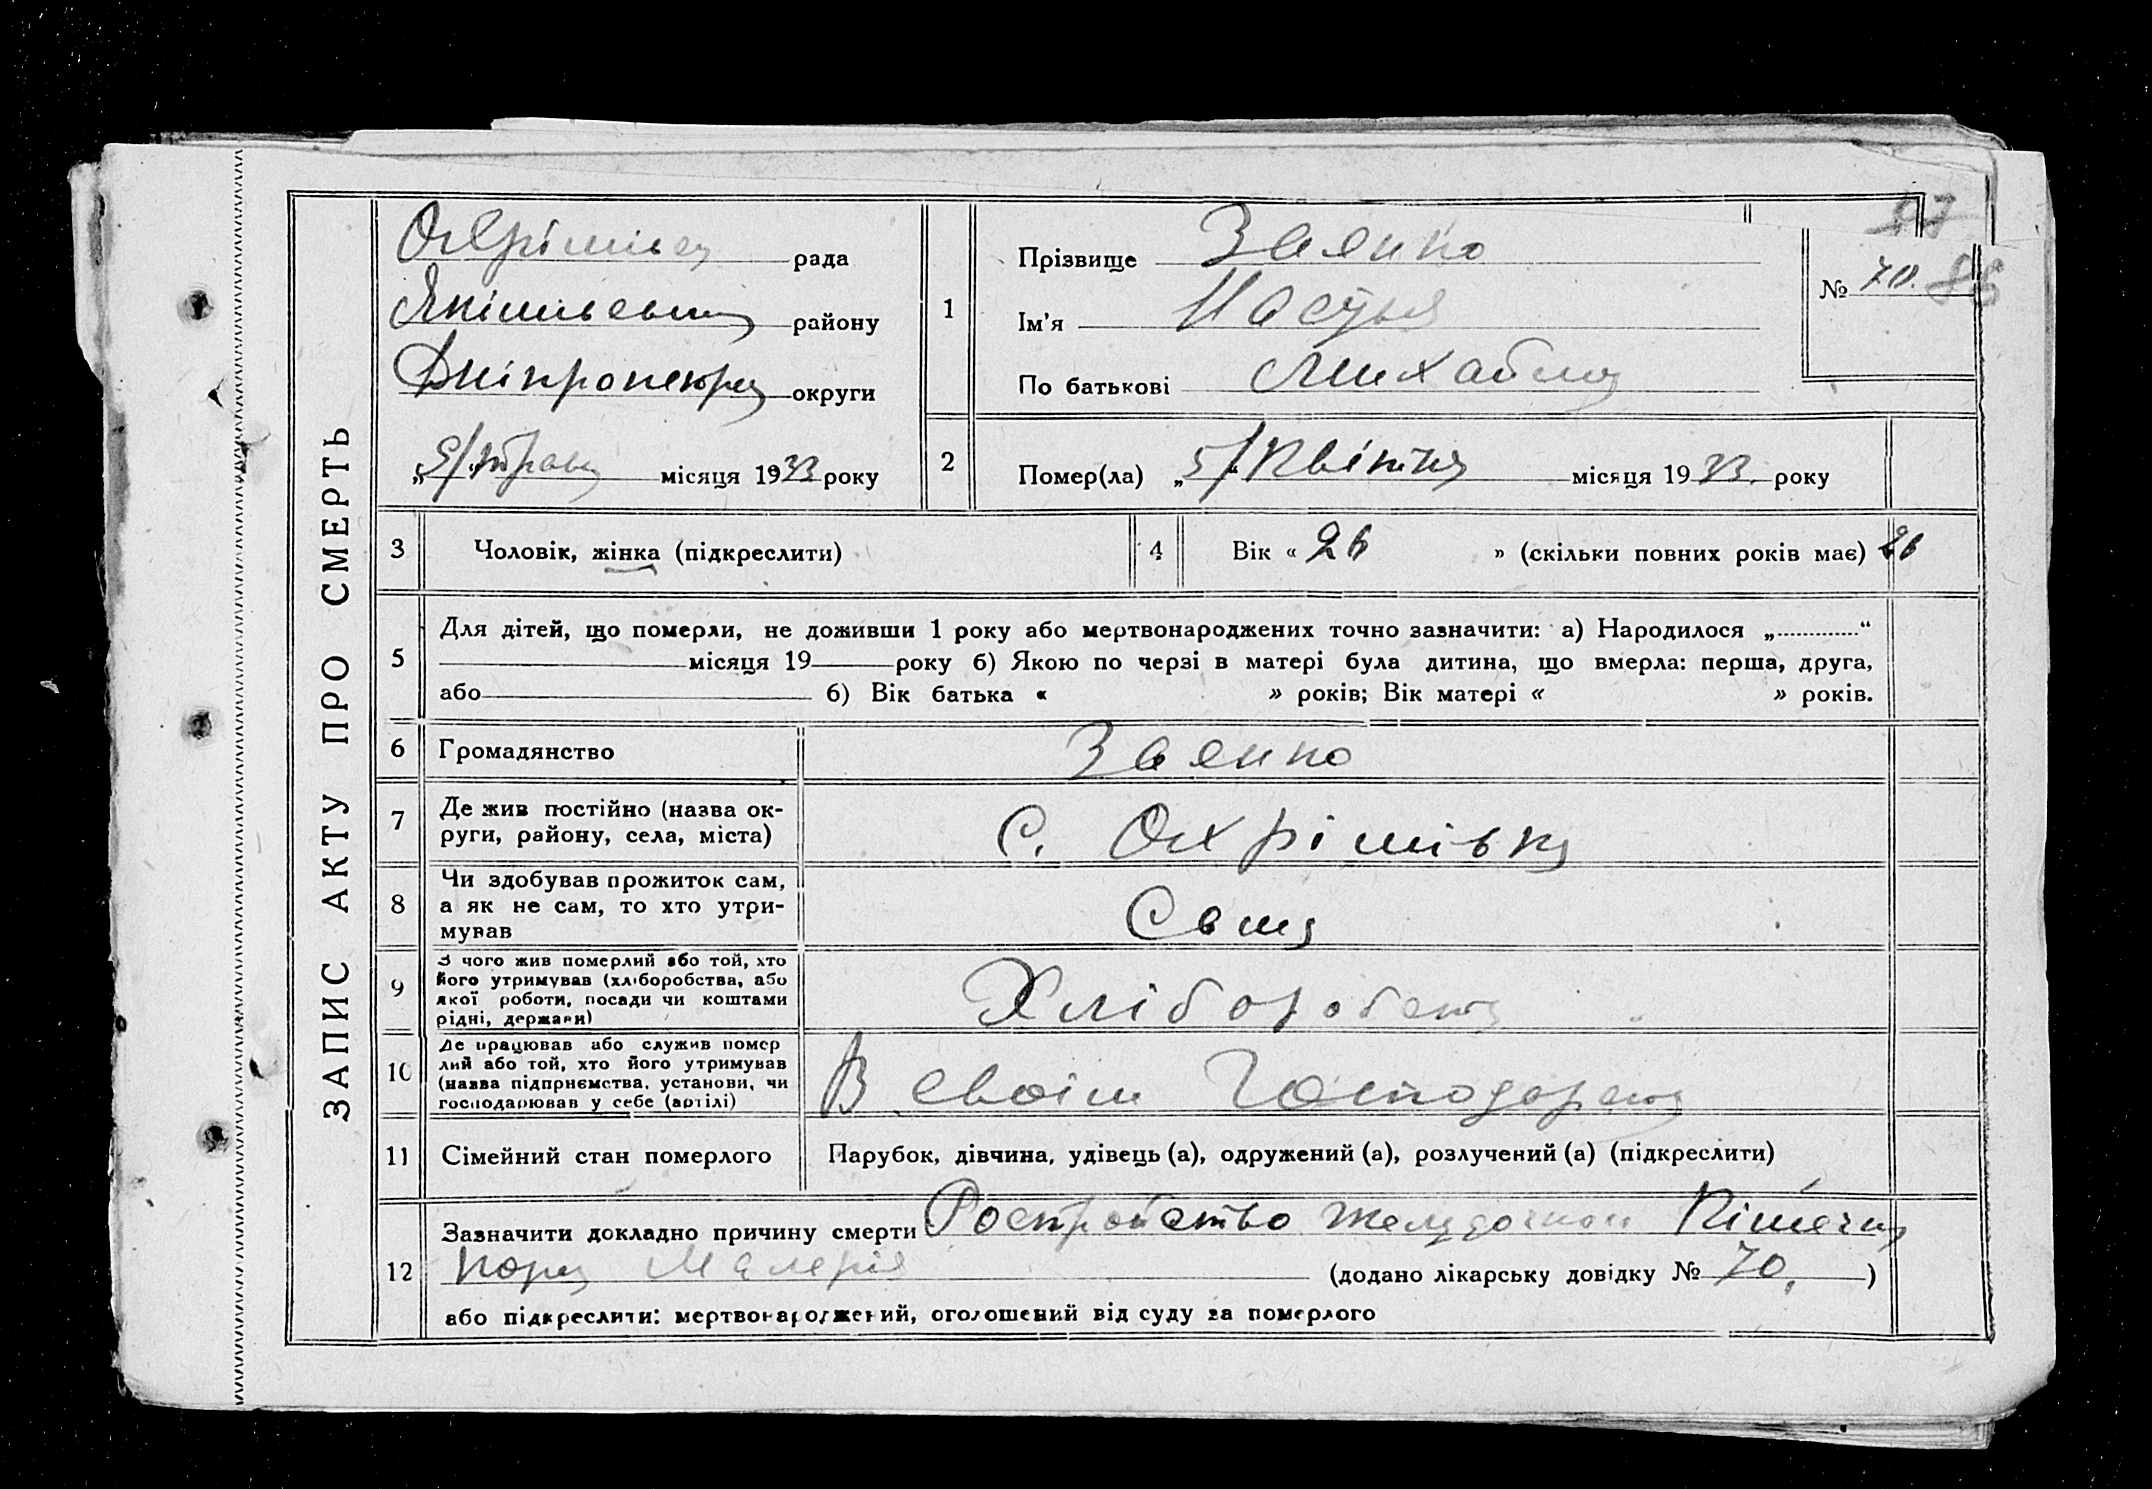 ЗАПИС АКТУ ПРО СМЕРТЬ
рада
району
округи
місяця 1933 року
1
Прізвище Заянко
Ім'я Настья
По батькові Михайл
№ 70.
2
Помер(ла) „5/“ Квітня місяця 1933. року
3 Чоловік, жінка (підкреслити)
4 Вік « 26 » (скільки повних років має) 26
5 Для дітей, що померли, не доживши 1 року або мертвонароджених точно зазначити: а) Народилося „ “
місяця 19 року б) Якою по черзі в матері була дитина, що вмерла: перша, друга,
або б) Вік батька « » років; Вік матері « » років.
6 Громадянство Заянко
7 Де жив постійно (назва ок-
руги, району, села, міста)
С. Охрімівка
8 Чи здобував прожиток сам,
а як не сам, то хто утри-
мував
Сама
9 З чого жив померлий або той, хто
його утримував (хліборобства, або
якої роботи, посади чи коштами
рідні, держави)
10 Де працював або служив помер
лий або той, хто його утримував
(назва підприємства, установи, чи
господарював у себе (артілі)
В своїм
11 Сімейний стан померлого Парубок, дівчина, удівець (а), одружений (а), розлучений (а) (підкреслити)
12 Зазначити докладно причину смерти Ростройство
Малерія (додано лікарську довідку № 70. )
або підкреслити: мертвонароджений, оголошений від суду за померлого